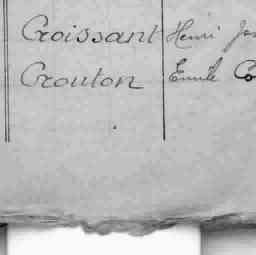 Croissant Henri
Crouton Emile